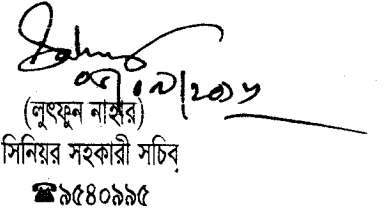 (লুৎফুন নাহার)
সিনিয়র সহকারী সচিব
☎৯৫৪০৯৯৫